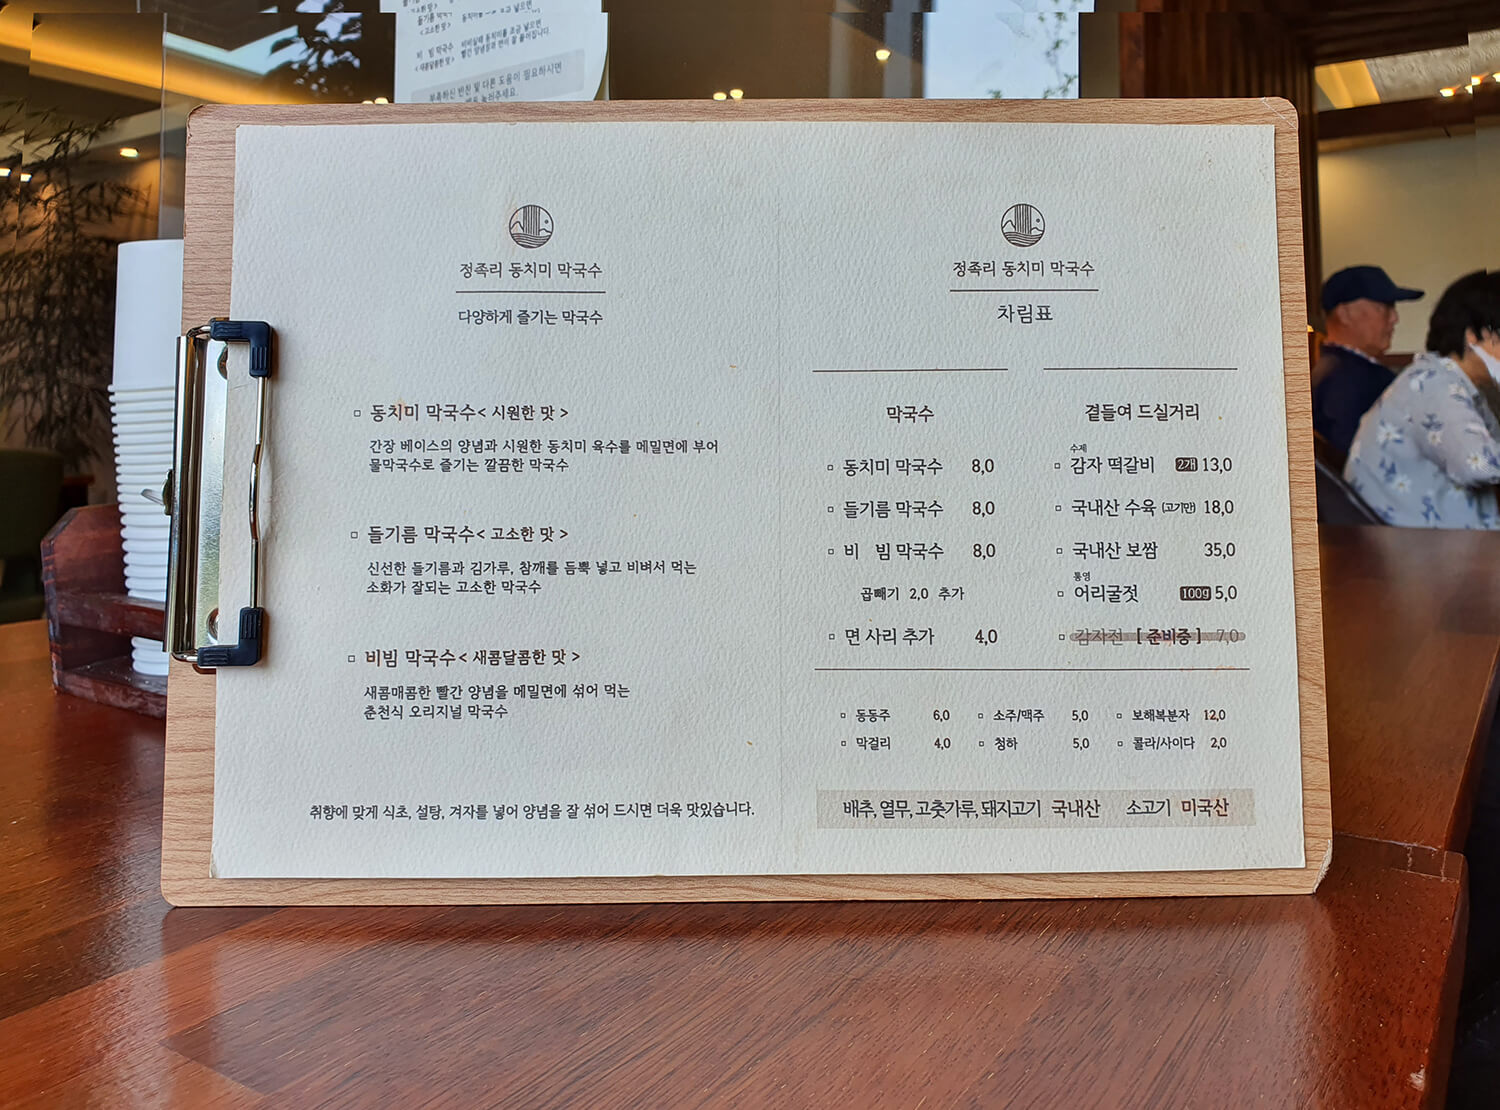 들기름 막국수 동치미를 조금 넣으면
<고소한 맛>
비 빔 막국수 비비실때 동치미를 조금 넣으면
<새콤달콤한 맛> 빨간 양념장과 면이 잘 풀어집니다.
부족하신 반찬 및 다른 도움이 필요하시면
눌러주세요.
정족리 동치미 막국수
다양하게 즐기는 막국수
동치미 막국수< 시원한 맛 >
간장 베이스의 양념과 시원한 동치미 육수를 메밀면에 부어
물막국수로 즐기는 깔끔한 막국수
들기름 막국수< 고소한 맛 >
신선한 들기름과 김가루, 참깨를 듬뿍 넣고 비벼서 먹는
소화가 잘되는 고소한 막국수
비빔 막국수< 새콤달콤한 맛 >
새콤매콤한 빨간 양념을 메밀면에 섞어 먹는
춘천식 오리지널 막국수
취향에 맞게 식초, 설탕, 겨자를 넣어 양념을 잘 섞어 드시면 더욱 맛있습니다.
정족리 동치미 막국수
차림표
막국수
동치미 막국수 8,0
들기름 막국수 8,0
비 빔 막국수 8,0
곱빼기 2,0 추가
면 사리 추가 4,0
곁들여 드실거리
수제
감자 떡갈비 2개 13,0
국내산 수육 (고기만) 18,0
국내산 보쌈 35,0
통영
어리굴젓 100g 5,0
감자전 [ 준비중 ] 7,0
동동주 6,0 소주/맥주 5,0 보해복분자 12,0
막걸리 4,0 청하 5,0 콜라/사이다 2,0
배추, 열무, 고춧가루, 돼지고기 국내산 소고기 미국산